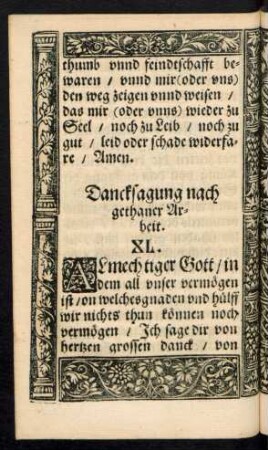 thumb vnnd feindtschafft be-
waren / vnnd mir (oder vns)
den weg zeigen vnnd weisen /
das mir (oder vnns) wieder zu
Seel / noch zu Leib / noch zu
gut / leid oder schade widerfa-
re / Amen.
Dancksagung nach
gethaner Ar-
beit.
XL.
ALmechtiger Gott / in
dem all vnser vermögen
ist / on welches gnaden vnd hülff
wir nichts thun können noch
vermögen / Jch sage dir von
hertzen grossen danck / von